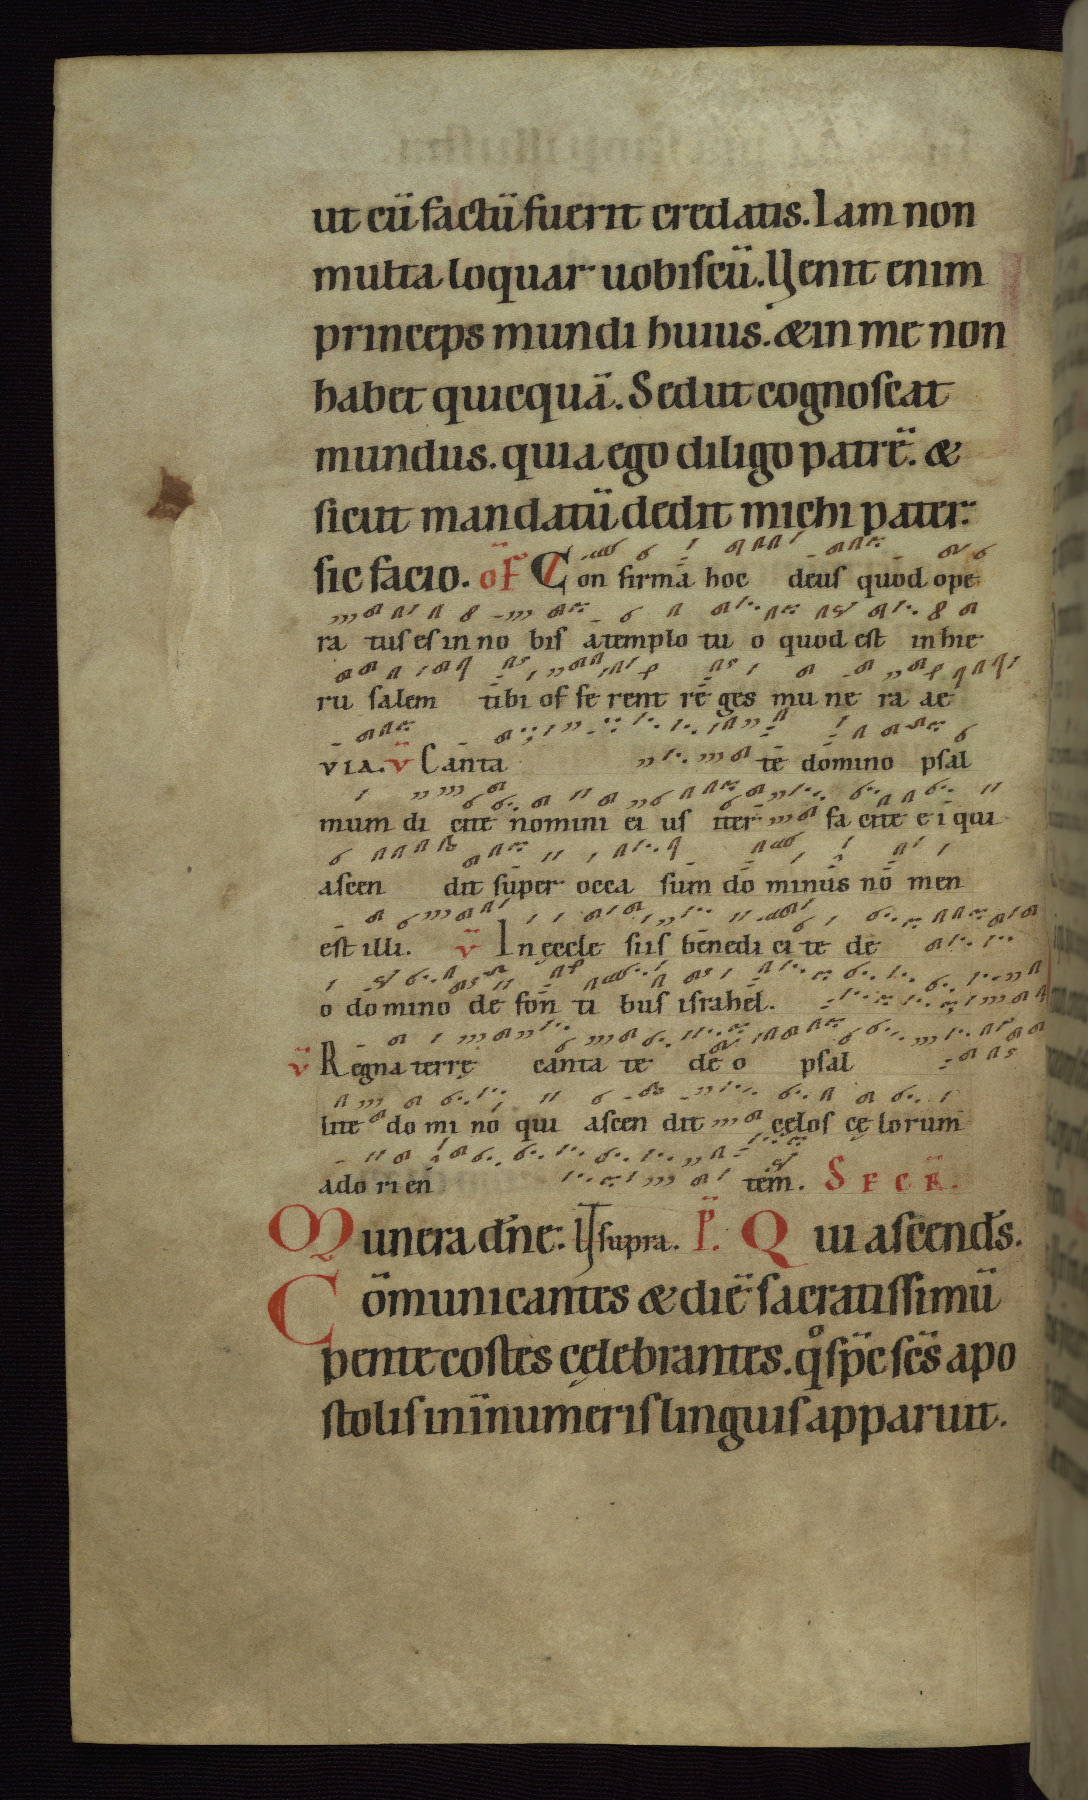 ut cū factū fuerit credatis. Iam non
multa loquar uobiscū. Venit enim
princeps mundi huius. & in me non
habet quicquā. Sed ut cognoscat
mundus. quia ego diligo patrē. &
sicut mandatū dedit michi pater.
sic facio. of Con firma hoc deus quod ope
ra tus es in no bis a templo tu o quod est in hie
ru salem tibi of fe rent re ges mu ne ra ae
VIA. V Canta te domino psal
mum di cite nomini ei us iter fa cite e i qui
ascen dit super occa sum do minus no men
est illi. V In eccle siis benedi ci te de
o domino de fon ti bus israhel.
V Regna terrę canta te de o psal
lite do mi no qui ascen dit cęlos cę lorum
ado ri en tem. SECR.
Munera dn̄e. Vt supra. P. Qui ascend̄s.
Cōmunicantes & diē sacratissimū
pentecostes cęlebrantes. qͦ sp̄c sc̄s apo
stolis inīnumeris linguis apparuit.